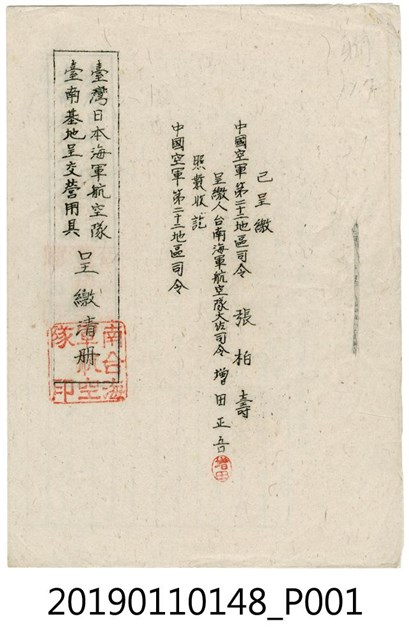 已呈繳
中國空軍第二十二地區司令 張柏壽
呈繳人台南海軍航空隊大佐司令 增田正吾
增田
照数收訖
中國空軍第二十二地區司令
臺灣日本海軍航空隊
臺南基地呈交營用具
呈繳清册
南台海
軍航空
隊印
20190110148_P001